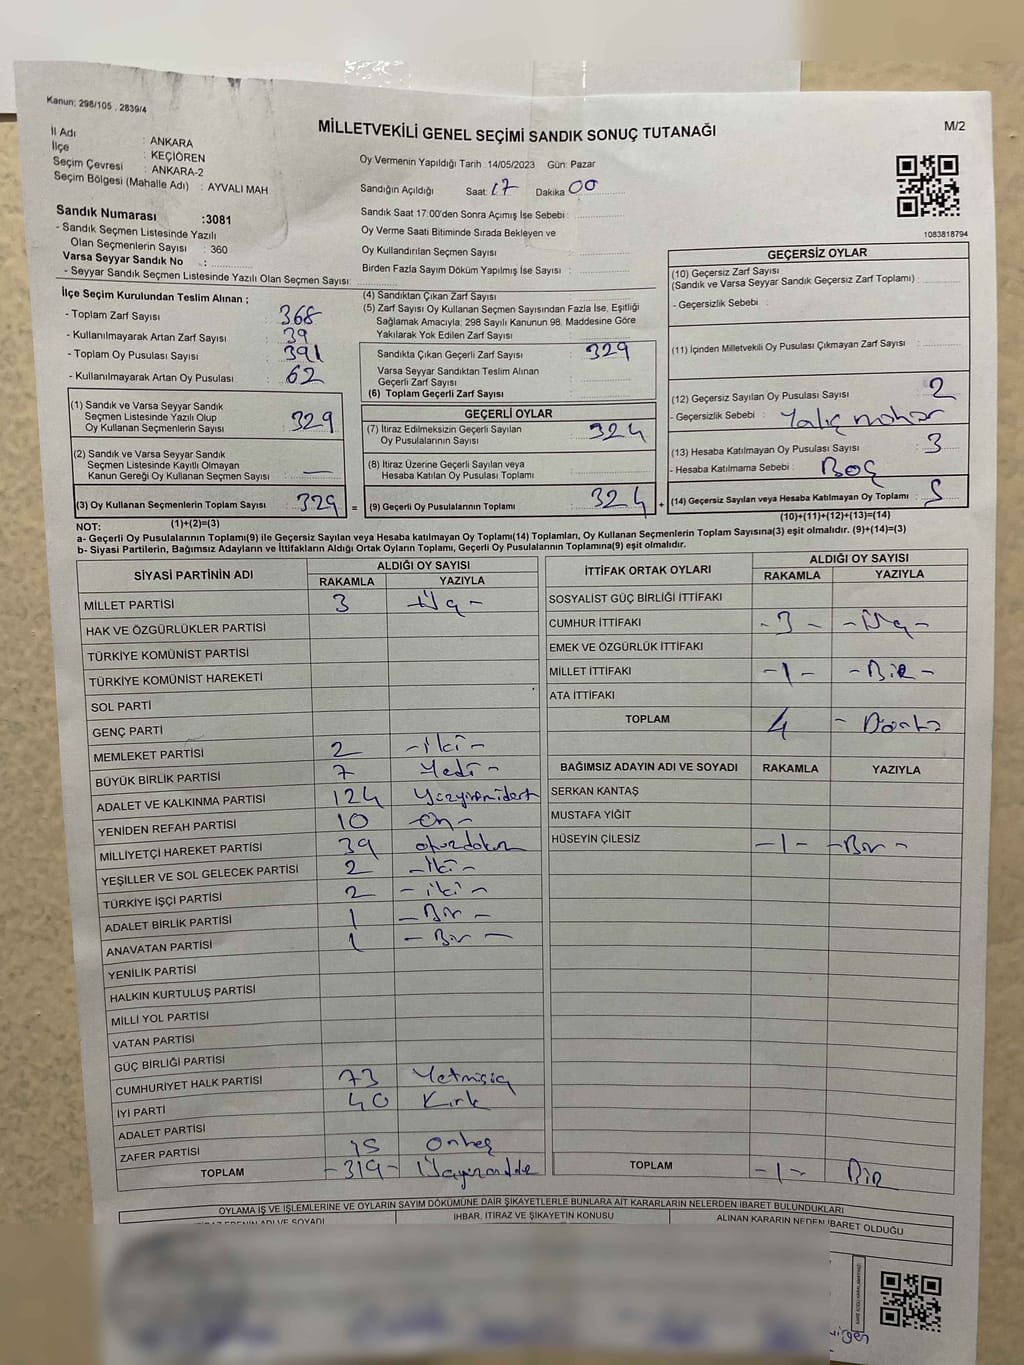 Kanun; 298/105 , 2839/4
MİLLETVEKİLİ GENEL SEÇİMİ SANDIK SONUÇ TUTANAĞI
M/2
İl Adı : ANKARA
İlçe : KEÇİÖREN
Seçim Çevresi : ANKARA-2
Seçim Bölgesi (Mahalle Adı) : AYVALI MAH
Oy Vermenin Yapıldığı Tarih :14/05/2023 Gün: Pazar
Sandığın Açıldığı Saat: 17 Dakika 00
Sandık Saat 17:00'den Sonra Açımış İse Sebebi :
Oy Verme Saati Bitiminde Sırada Bekleyen ve
Oy Kullandırılan Seçmen Sayısı :
Birden Fazla Sayım Döküm Yapılmış İse Sayısı :
1083818794
Sandık Numarası :3081
- Sandık Seçmen Listesinde Yazılı
Olan Seçmenlerin Sayısı : 360
Varsa Seyyar Sandık No :
- Seyyar Sandık Seçmen Listesinde Yazılı Olan Seçmen Sayısı:
İlçe Seçim Kurulundan Teslim Alınan ;
- Toplam Zarf Sayısı : 368
- Kullanılmayarak Artan Zarf Sayısı : 39
- Toplam Oy Pusulası Sayısı : 391
- Kullanılmayarak Artan Oy Pusulası : 62
(1) Sandık ve Varsa Seyyar Sandık
Seçmen Listesinde Yazılı Olup
Oy Kullanan Seçmenlerin Sayısı : 329
(2) Sandık ve Varsa Seyyar Sandık
Seçmen Listesinde Kayıtlı Olmayan
Kanun Gereği Oy Kullanan Seçmen Sayısı : —
(3) Oy Kullanan Seçmenlerin Toplam Sayısı : 329 =
(1)+(2)=(3)
(4) Sandıktan Çıkan Zarf Sayısı :
(5) Zarf Sayısı Oy Kullanan Seçmen Sayısından Fazla İse, Eşitliği
Sağlamak Amacıyla, 298 Sayılı Kanunun 98. Maddesine Göre
Yakılarak Yok Edilen Zarf Sayısı :
Sandıkta Çıkan Geçerli Zarf Sayısı : 329
Varsa Seyyar Sandıktan Teslim Alınan
Geçerli Zarf Sayısı :
(6) Toplam Geçerli Zarf Sayısı :
GEÇERLİ OYLAR
(7) İtiraz Edilmeksizin Geçerli Sayılan
Oy Pusulalarının Sayısı : 324
(8) İtiraz Üzerine Geçerli Sayılan veya
Hesaba Katılan Oy Pusulası Toplamı :
(9) Geçerli Oy Pusulalarının Toplamı : 324 +
GEÇERSİZ OYLAR
(10) Geçersiz Zarf Sayısı
(Sandık ve Varsa Seyyar Sandık Geçersiz Zarf Toplamı) :
- Geçersizlik Sebebi :
(11) İçinden Milletvekili Oy Pusulası Çıkmayan Zarf Sayısı :
(12) Geçersiz Sayılan Oy Pusulası Sayısı : 2
- Geçersizlik Sebebi :
(13) Hesaba Katılmayan Oy Pusulası Sayısı : 3
- Hesaba Katılmama Sebebi : Boş
(14) Geçersiz Sayılan veya Hesaba Katılmayan Oy Toplamı : 5
(10)+(11)+(12)+(13)=(14)
NOT:
a- Geçerli Oy Pusulalarının Toplamı(9) ile Geçersiz Sayılan veya Hesaba katılmayan Oy Toplamı(14) Toplamları, Oy Kullanan Seçmenlerin Toplam Sayısına(3) eşit olmalıdır. (9)+(14)=(3)
b- Siyasi Partilerin, Bağımsız Adayların ve İttifakların Aldığı Ortak Oyların Toplamı, Geçerli Oy Pusulalarının Toplamına(9) eşit olmalıdır.
SİYASİ PARTİNİN ADI ALDIĞI OY SAYISI
RAKAMLA YAZIYLA
MİLLET PARTİSİ 3 -Üç-
HAK VE ÖZGÜRLÜKLER PARTİSİ
TÜRKİYE KOMÜNİST PARTİSİ
TÜRKİYE KOMÜNİST HAREKETİ
SOL PARTİ
GENÇ PARTİ
MEMLEKET PARTİSİ 2 -iki-
BÜYÜK BİRLİK PARTİSİ 7 Yedi-
ADALET VE KALKINMA PARTİSİ 124 Yüzyirmidört
YENİDEN REFAH PARTİSİ 10 -On-
MİLLİYETÇİ HAREKET PARTİSİ 39 otuzdokuz
YEŞİLLER VE SOL GELECEK PARTİSİ 2 -İki-
TÜRKİYE İŞÇİ PARTİSİ 2 -iki-
ADALET BİRLİK PARTİSİ 1 -Bir-
ANAVATAN PARTİSİ 1 -Bir-
YENİLİK PARTİSİ
HALKIN KURTULUŞ PARTİSİ
MİLLİ YOL PARTİSİ
VATAN PARTİSİ
GÜÇ BİRLİĞİ PARTİSİ
CUMHURİYET HALK PARTİSİ 73 Yetmişüç
İYİ PARTİ 40 Kırk
ADALET PARTİSİ
ZAFER PARTİSİ 15 Onbeş
TOPLAM -319-
İTTİFAK ORTAK OYLARI ALDIĞI OY SAYISI
RAKAMLA YAZIYLA
SOSYALİST GÜÇ BİRLİĞİ İTTİFAKI
CUMHUR İTTİFAKI -3- -Üç-
EMEK VE ÖZGÜRLÜK İTTİFAKI
MİLLET İTTİFAKI -1- -BİR-
ATA İTTİFAKI
TOPLAM 4 -Dört
BAĞIMSIZ ADAYIN ADI VE SOYADI RAKAMLA YAZIYLA
SERKAN KANTAŞ
MUSTAFA YİĞİT
HÜSEYİN ÇİLESİZ -1- -Bir-
TOPLAM -1- BİR
OYLAMA İŞ VE İŞLEMLERİNE VE OYLARIN SAYIM DÖKÜMÜNE DAİR ŞİKAYETLERLE BUNLARA AİT KARARLARIN NELERDEN İBARET BULUNDUKLARI
İHBAR, İTİRAZ VE ŞİKAYETİN KONUSU
ALINAN KARARIN NEDEN İBARET OLDUĞU